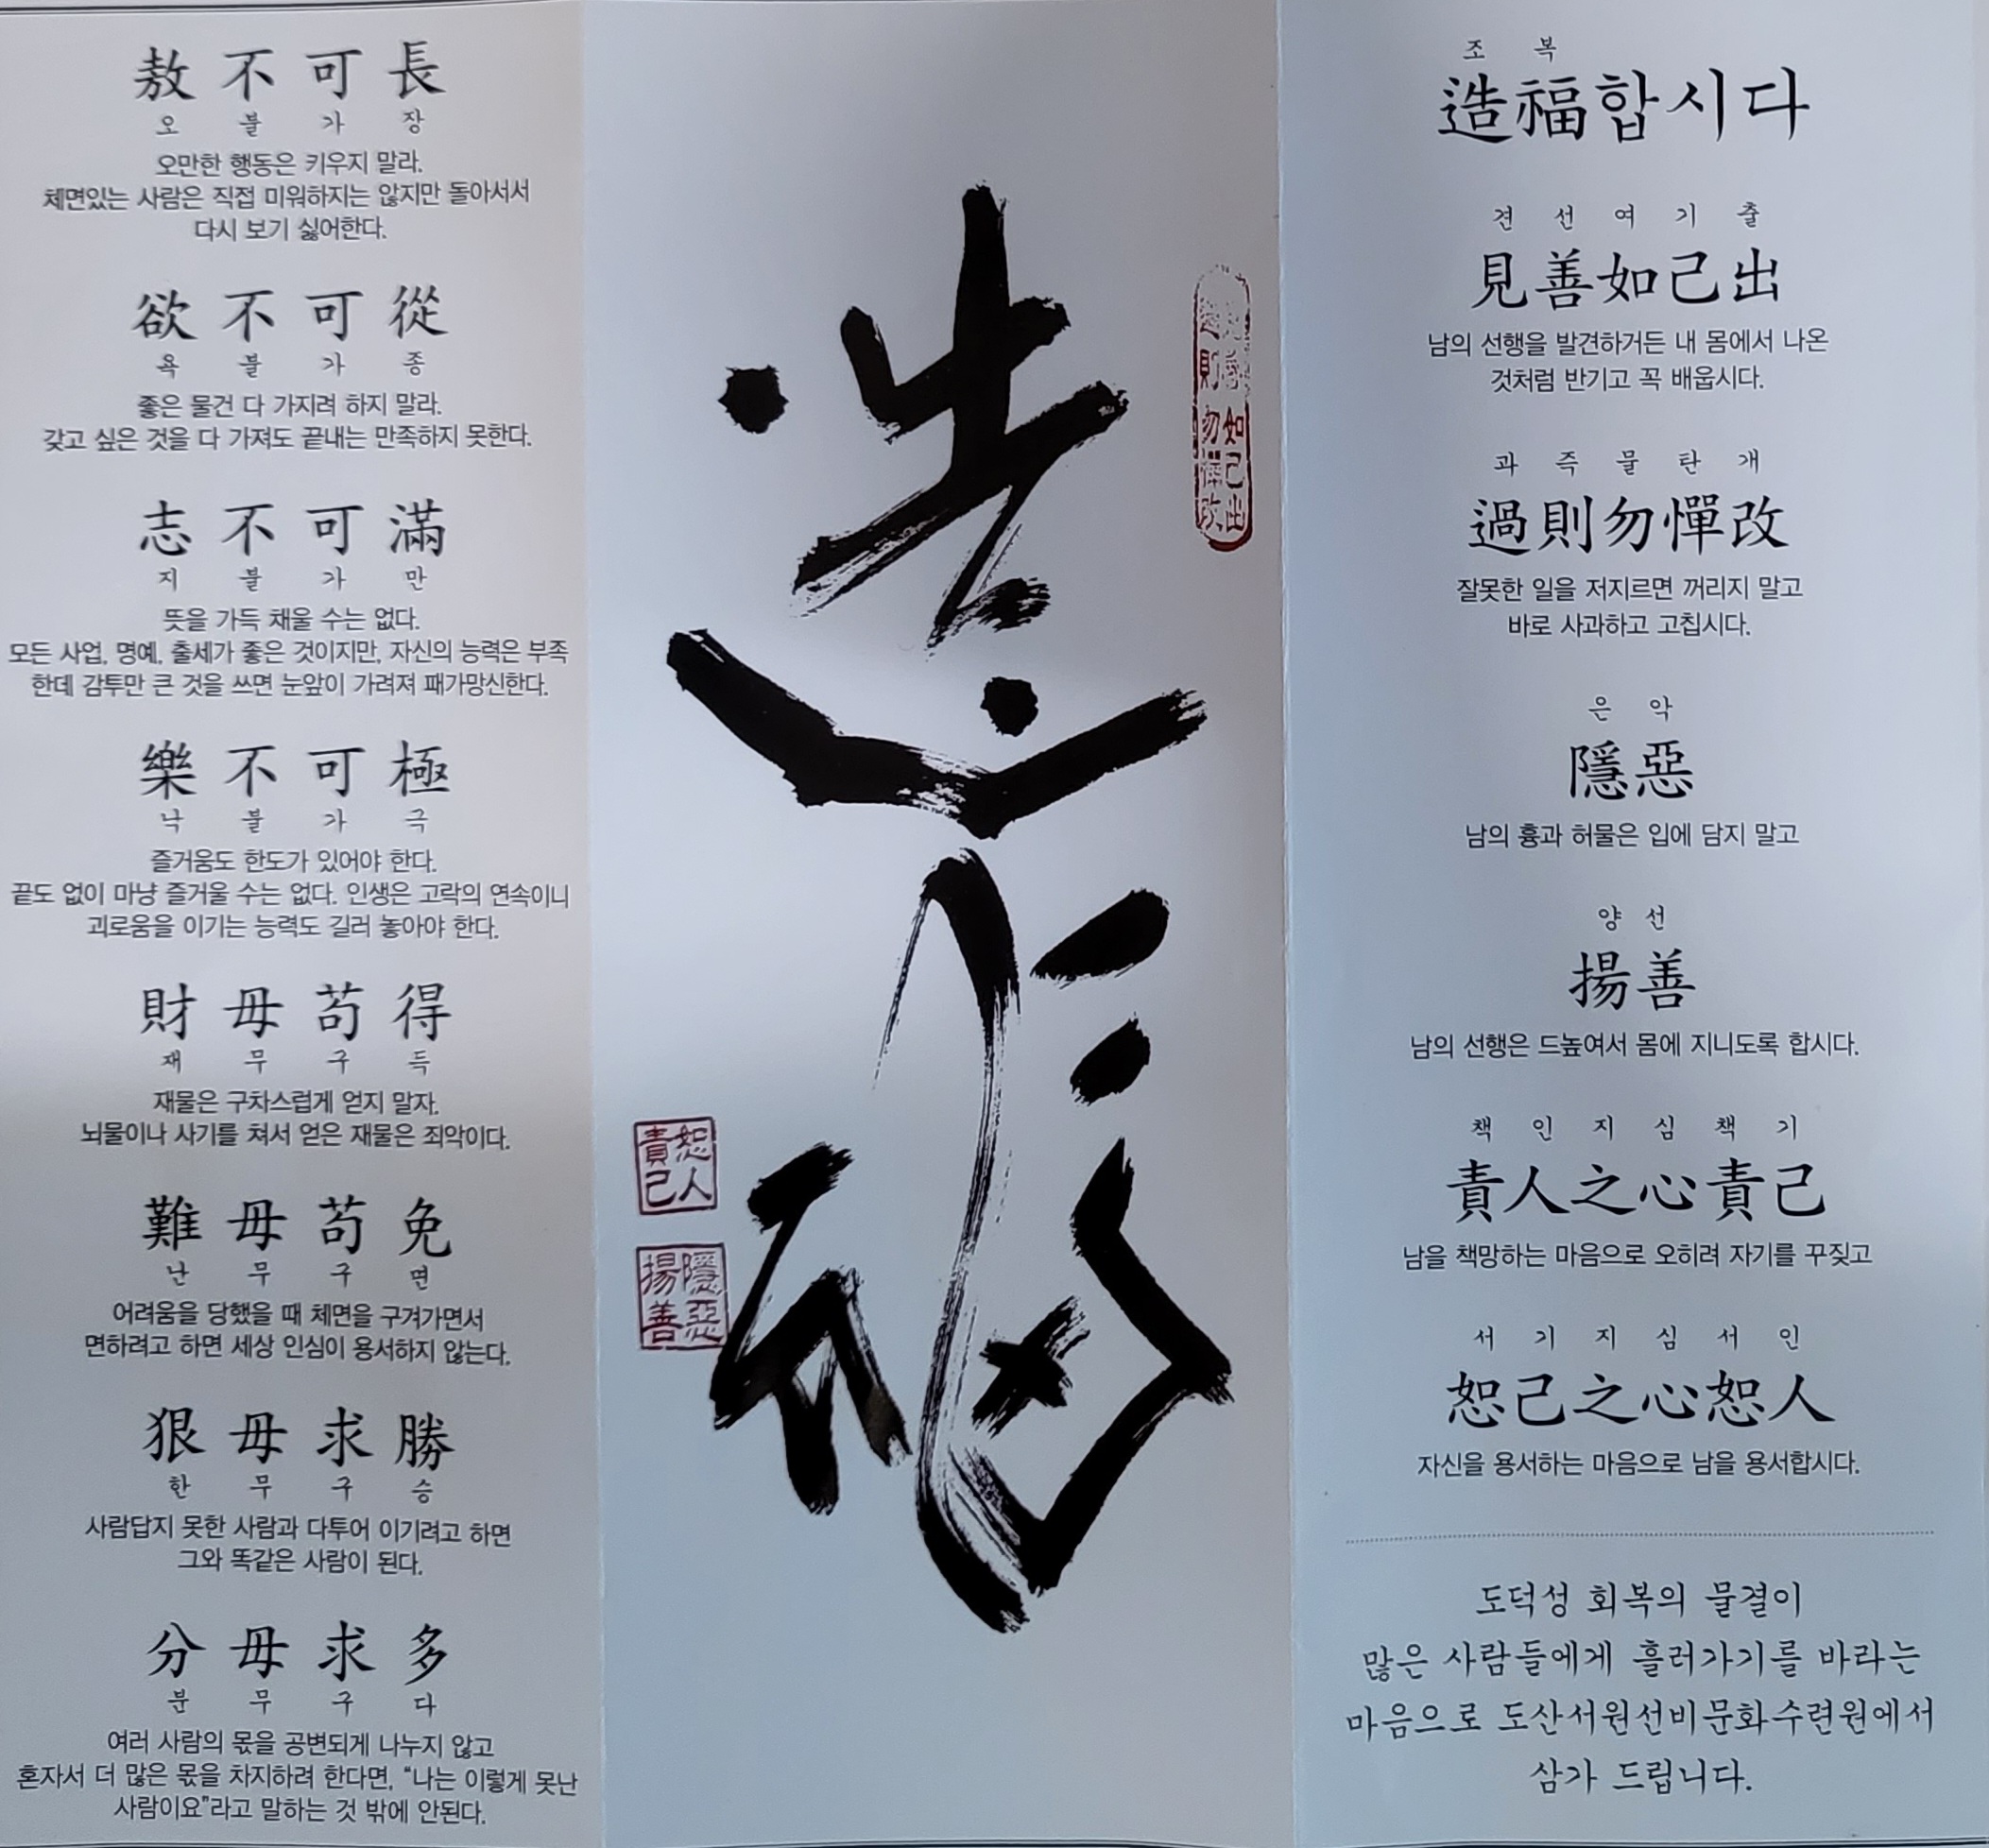 敖 不 可 長
오 불 가 장
오만한 행동은 키우지 말라.
체면있는 사람은 직접 미워하지는 않지만 돌아서서
다시 보기 싫어한다.
欲 不 可 從
욕 불 가 종
좋은 물건 다 가지려 하지 말라.
갖고 싶은 것을 다 가져도 끝내는 만족하지 못한다.
志 不 可 滿
지 불 가 만
뜻을 가득 채울 수는 없다.
모든 사업, 명예, 출세가 좋은 것이지만, 자신의 능력은 부족
한데 감투만 큰 것을 쓰면 눈앞이 가려져 패가망신한다.
樂 不 可 極
낙 불 가 극
즐거움도 한도가 있어야 한다.
끝도 없이 마냥 즐거울 수는 없다. 인생은 고락의 연속이니
괴로움을 이기는 능력도 길러 놓아야 한다.
財 毋 苟 得
재 무 구 득
재물은 구차스럽게 얻지 말자.
뇌물이나 사기를 쳐서 얻은 재물은 죄악이다.
難 毋 苟 免
난 무 구 면
어려움을 당했을 때 체면을 구겨가면서
면하려고 하면 세상 인심이 용서하지 않는다.
狠 毋 求 勝
한 무 구 승
사람답지 못한 사람과 다투어 이기려고 하면
그와 똑같은 사람이 된다.
分 毋 求 多
분 무 구 다
여러 사람의 몫을 공변되게 나누지 않고
혼자서 더 많은 몫을 차지하려 한다면, “나는 이렇게 못난
사람이요”라고 말하는 것 밖에 안된다.
造福
如己出
則勿憚改
恕人
責己
隱惡
揚善
조 복
造福합시다
견 선 여 기 출
見善如己出
남의 선행을 발견하거든 내 몸에서 나온
것처럼 반기고 꼭 배웁시다.
과 즉 물 탄 개
過則勿憚改
잘못한 일을 저지르면 꺼리지 말고
바로 사과하고 고칩시다.
은 악
隱惡
남의 흉과 허물은 입에 담지 말고
양 선
揚善
남의 선행은 드높여서 몸에 지니도록 합시다.
책 인 지 심 책 기
責人之心責己
남을 책망하는 마음으로 오히려 자기를 꾸짖고
서 기 지 심 서 인
恕己之心恕人
자신을 용서하는 마음으로 남을 용서합시다.
도덕성 회복의 물결이
많은 사람들에게 흘러가기를 바라는
마음으로 도산서원선비문화수련원에서
삼가 드립니다.